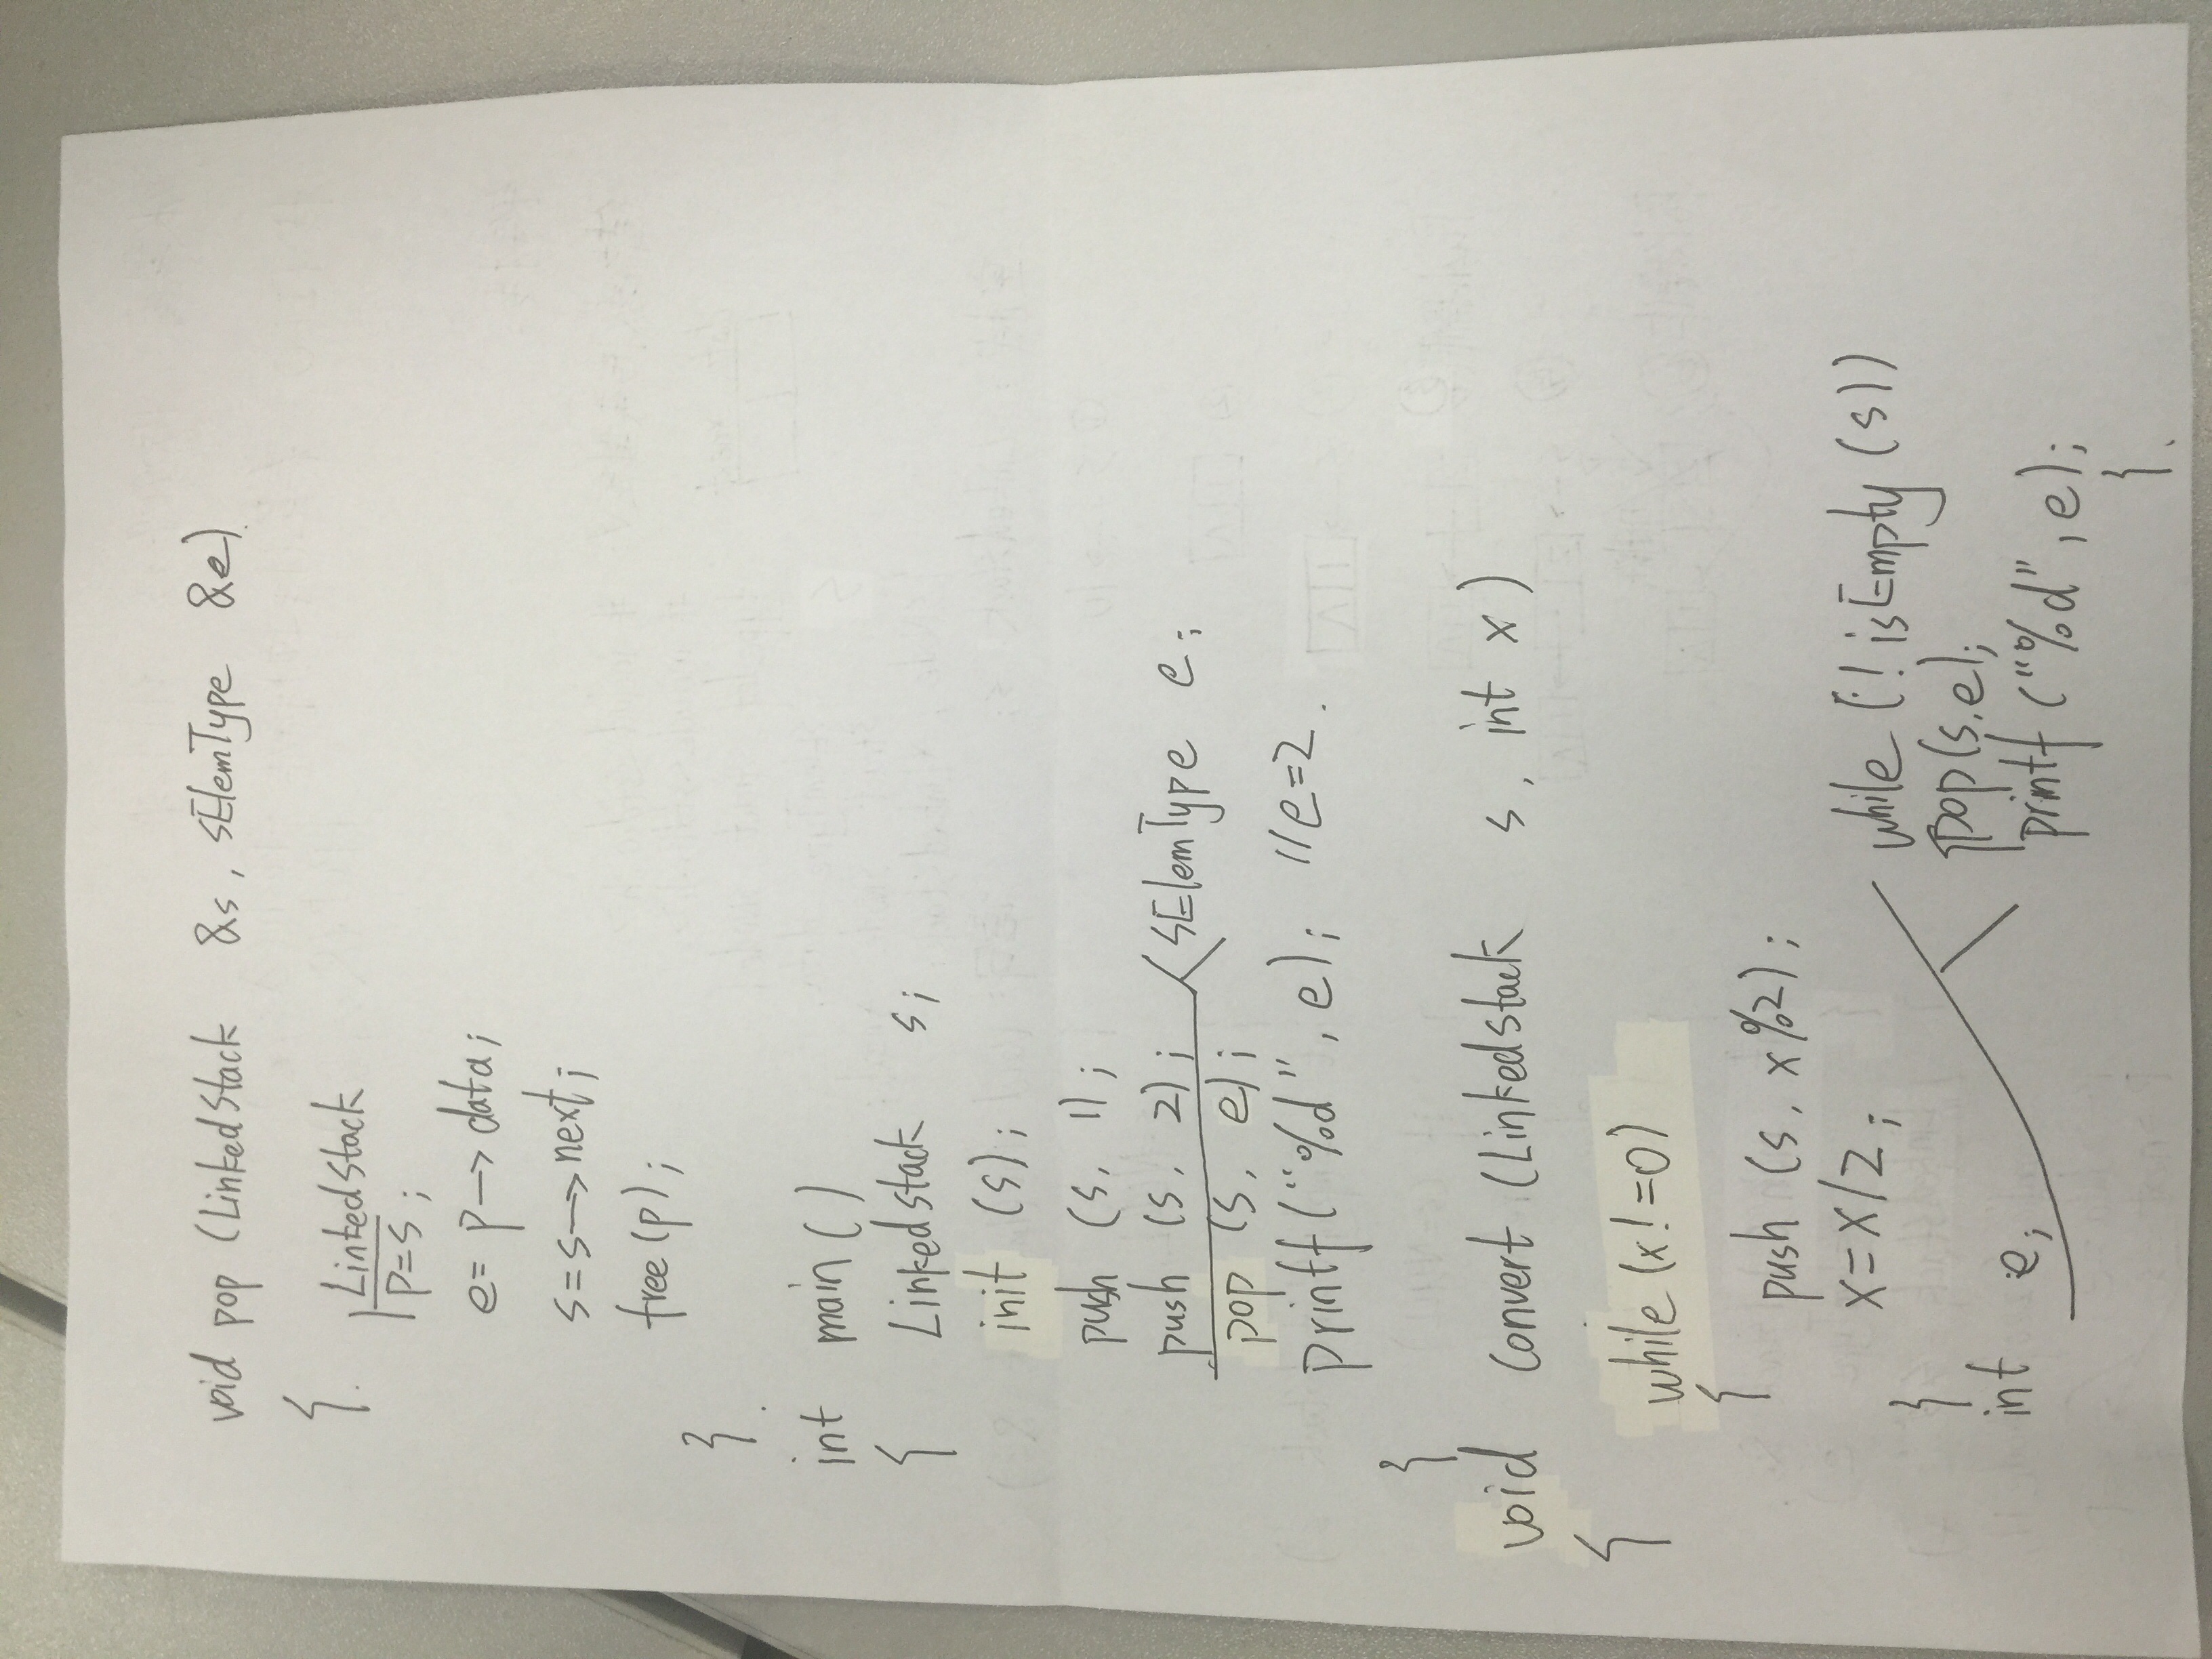 void pop (LinkedStack &s, SElemType &e)
{
LinkedStack
p=s;
e=p→data;
s=s→next;
free(p);
}
int main()
{
LinkedStack s;
init (s);
push (s, 1);
push (s, 2);
SElemType e;
pop (s, e);
printf("%d", e); //e=2.
}
void convert (LinkedStack s, int x)
{
while (x!=0)
{
push (s, x%2);
x=x/2;
}
int e;
while (!isEmpty(s))
{pop(s,e);
printf("%d",e);
}